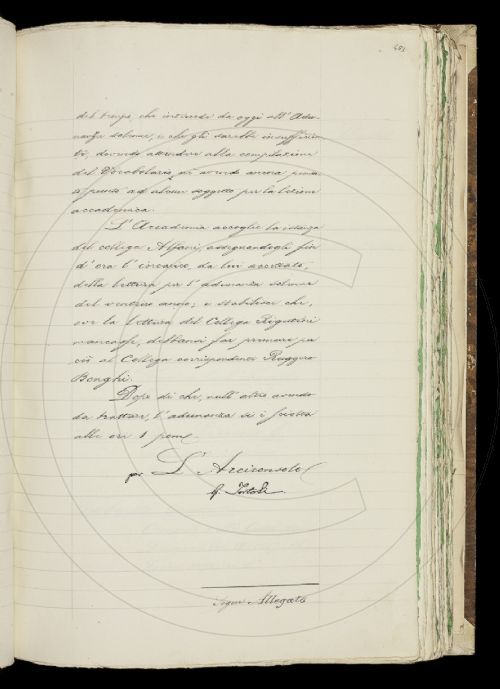 del tempo, che intercede da oggi all'Adu-
nanza solenne, e che gli sarebbe insufficien-
te, dovendo attendere alla compilazione
del Vocabolario, nè avendo ancora pensa-
to ad alcun soggetto per la lezione
accademica.
L'Accademia accoglie la istanza
del collega Alfani, assegnandogli fin
d'ora l'incarico, da lui accettato,
della lettura per l'adunanza solenne
del venturo anno; e stabilisce che,
ove la lettura del Collega Rigutini
mancasse, debbansi far premure per
ciò al Collega corrispondente Ruggero
Bonghi.
Dopo di che, null'altro avendo
da trattare, l'adunanza si è sciolta
alle ore 1 pom.
per L'Arciconsolo
G. Tortoli
Segue Allegato